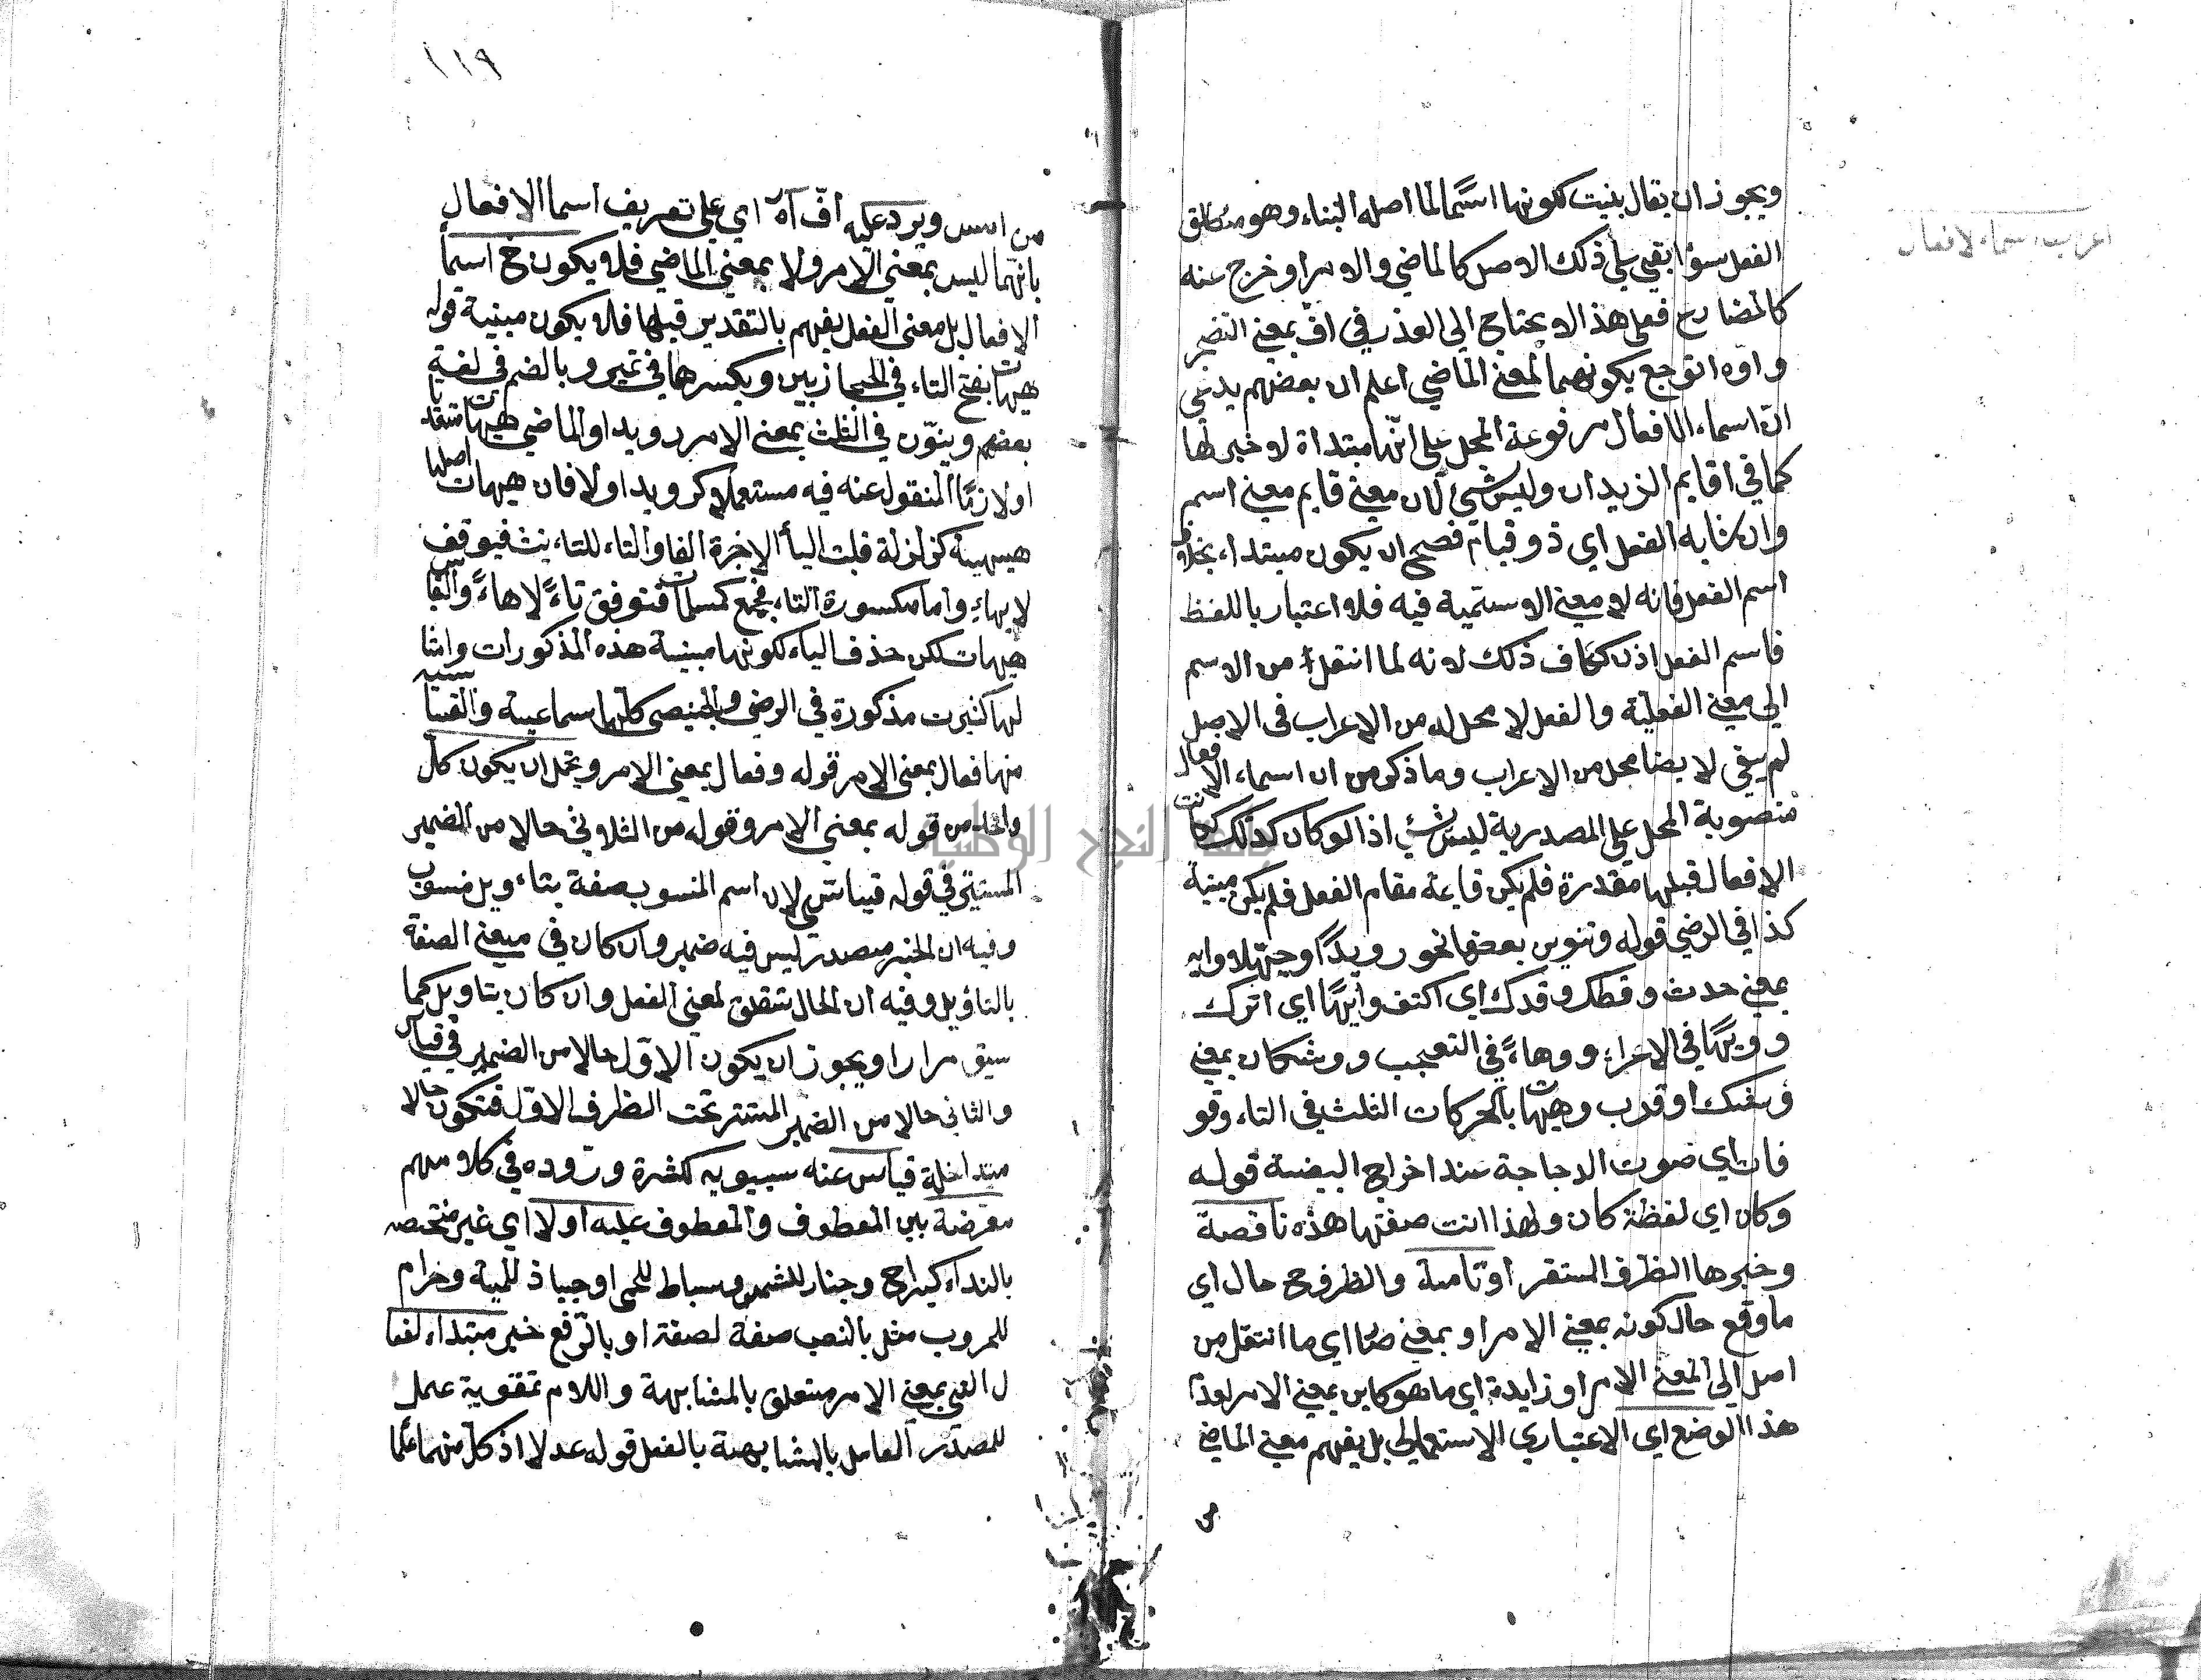 اعراب اسماء الافعال
ويجوز ان يقال بنيت لكونها اسما لما اصله البناء وهو مطلق
الفعل سواء بقي على ذلك الاصل كالماضي والامر او خرج عنه
كالمضارع فعلى هذا لا يحتاج الى العذر في اف بمعنى اتضجر
واوه اتوجع بكونهما بمعنى الماضي اعلم ان بعضهم يدعي
ان اسماء الافعال مرفوعة المحل على انها مبتداة لا خبر لها
كما في اقايم الزيدان وليس بشئ لان معنى قايم معنى اسم
وان شابه الفعل اي ذو قيام فصح ان يكون مبتداء بخلاف
اسم الفعل فانه لا معنى الاسمية فيه فلا اعتبار باللفظ
فاسم الفعل اذن ككاف ذلك لانه لما انتقل من الاسم
الى معنى الفعلية والفعل لا محل له من الاعراب في الاصل
لم يبق لا يضا محل من الاعراب وما ذكر من ان اسماء الافعال
منصوبة المحل على المصدرية ليس بشئ اذ لو كان كذلك لكانت
الافعال قبلها مقدرة فلم يكن قايمة مقام الفعل فلم يكن مبنية
كذا في الرضي قوله وتنوين بعضها نحو رويدا وحيهلا وايه
بمعنى حدث وقطك وقدك اي اكتف وايها اي اترك
وويها في الاغراء وواها في التعجب ووشكان بمعنى
وشك او قرب وهيهات بالحركات الثلث في التاء وقو
قات اي صوت الدجاجة عند اخراج البيضة قوله
وكان اي لفظة كان ولهذا انت صفتها هذه ناقصة
وخبرها الظرف المستقر او تامة والظرف ح حال اي
ما وقع حال كونه بمعنى الامر او بمعنى صار اي ما انتقل من
اصل الى المعنى الامر او زايدة اي ما هو كاين بمعنى الامر
هذا الوضع اي الاعتباري الاستعمالي بل يفهم معنى الماضي
١١٩
من امس ويرد عليه اف آه اي على تعريف اسما الافعال
بانهما ليس بمعنى الامر ولا بمعنى الماضي فلا يكون ح اسما
الافعال بل معنى الفعل يفهم بالتقدير قبلها فلا يكون مبنية قوله
هيهات بفتح التاء في الحجازيين وبكسرها في تميم وبالضم في لغية
بعضهم وينون في الثلث بمعنى الامر رويدا والماضي هيهات متعديا
او لازما المنقول عنه فيه مستعملا كرويدا او لا فان هيهات اصلها
هيهية كزلزلة قلبت اليا الاخرة الفا والتاء للتانيث فيوقف
لا بهاء واما مكسورة التاء فجمع كمسلمات فتوقف تاء لا هاء والقياس
هيهات لكن حذف الياء لكونها مبنية هذه المذكورات وامثا
لها كثيرت مذكورة في الرضي وكلها سماعية والقياسية
منها فعال بمعنى الامر قوله وفعال بمعنى الامر ويحتمل ان يكون كل
واحد من قوله بمعنى الامر وقوله من الثلاثي حالا من الضمير
المستتر في قوله قياسي لان اسم المنسوب صفة بتاويل منسوب
وفيه ان الخبر مصدر ليس فيه ضمير وان كان في معنى الصفة
بالتاويل وفيه ان الحال تتعلق لمعنى الفعل وان كان بتاويل كما
سبق مرارا ويجوز ان يكون الاول حالا من الضمير في قياس
والثاني حالا من الضمير المستتر تحت الظرف الاول فتكون حالا
متداخلة قياس عنه سيبويه لكثرة وروده في كلامهم
معترضة بين المعطوف والمعطوف عليه او لا اي غير مختصه
بالنداء كبراح وحناذ للشمس وسباط للحمى او جباذ للمية وخرام
للحروب مثل بالنصب صفة لصفة او بالرفع خبر مبتداء لفعا
ل التي بمعنى الامر متعلق بالمشابهة واللام تقوية عمل
للمصدر العامل بالمشابهة بالفعل قوله عدلا اذ كل منهما علما